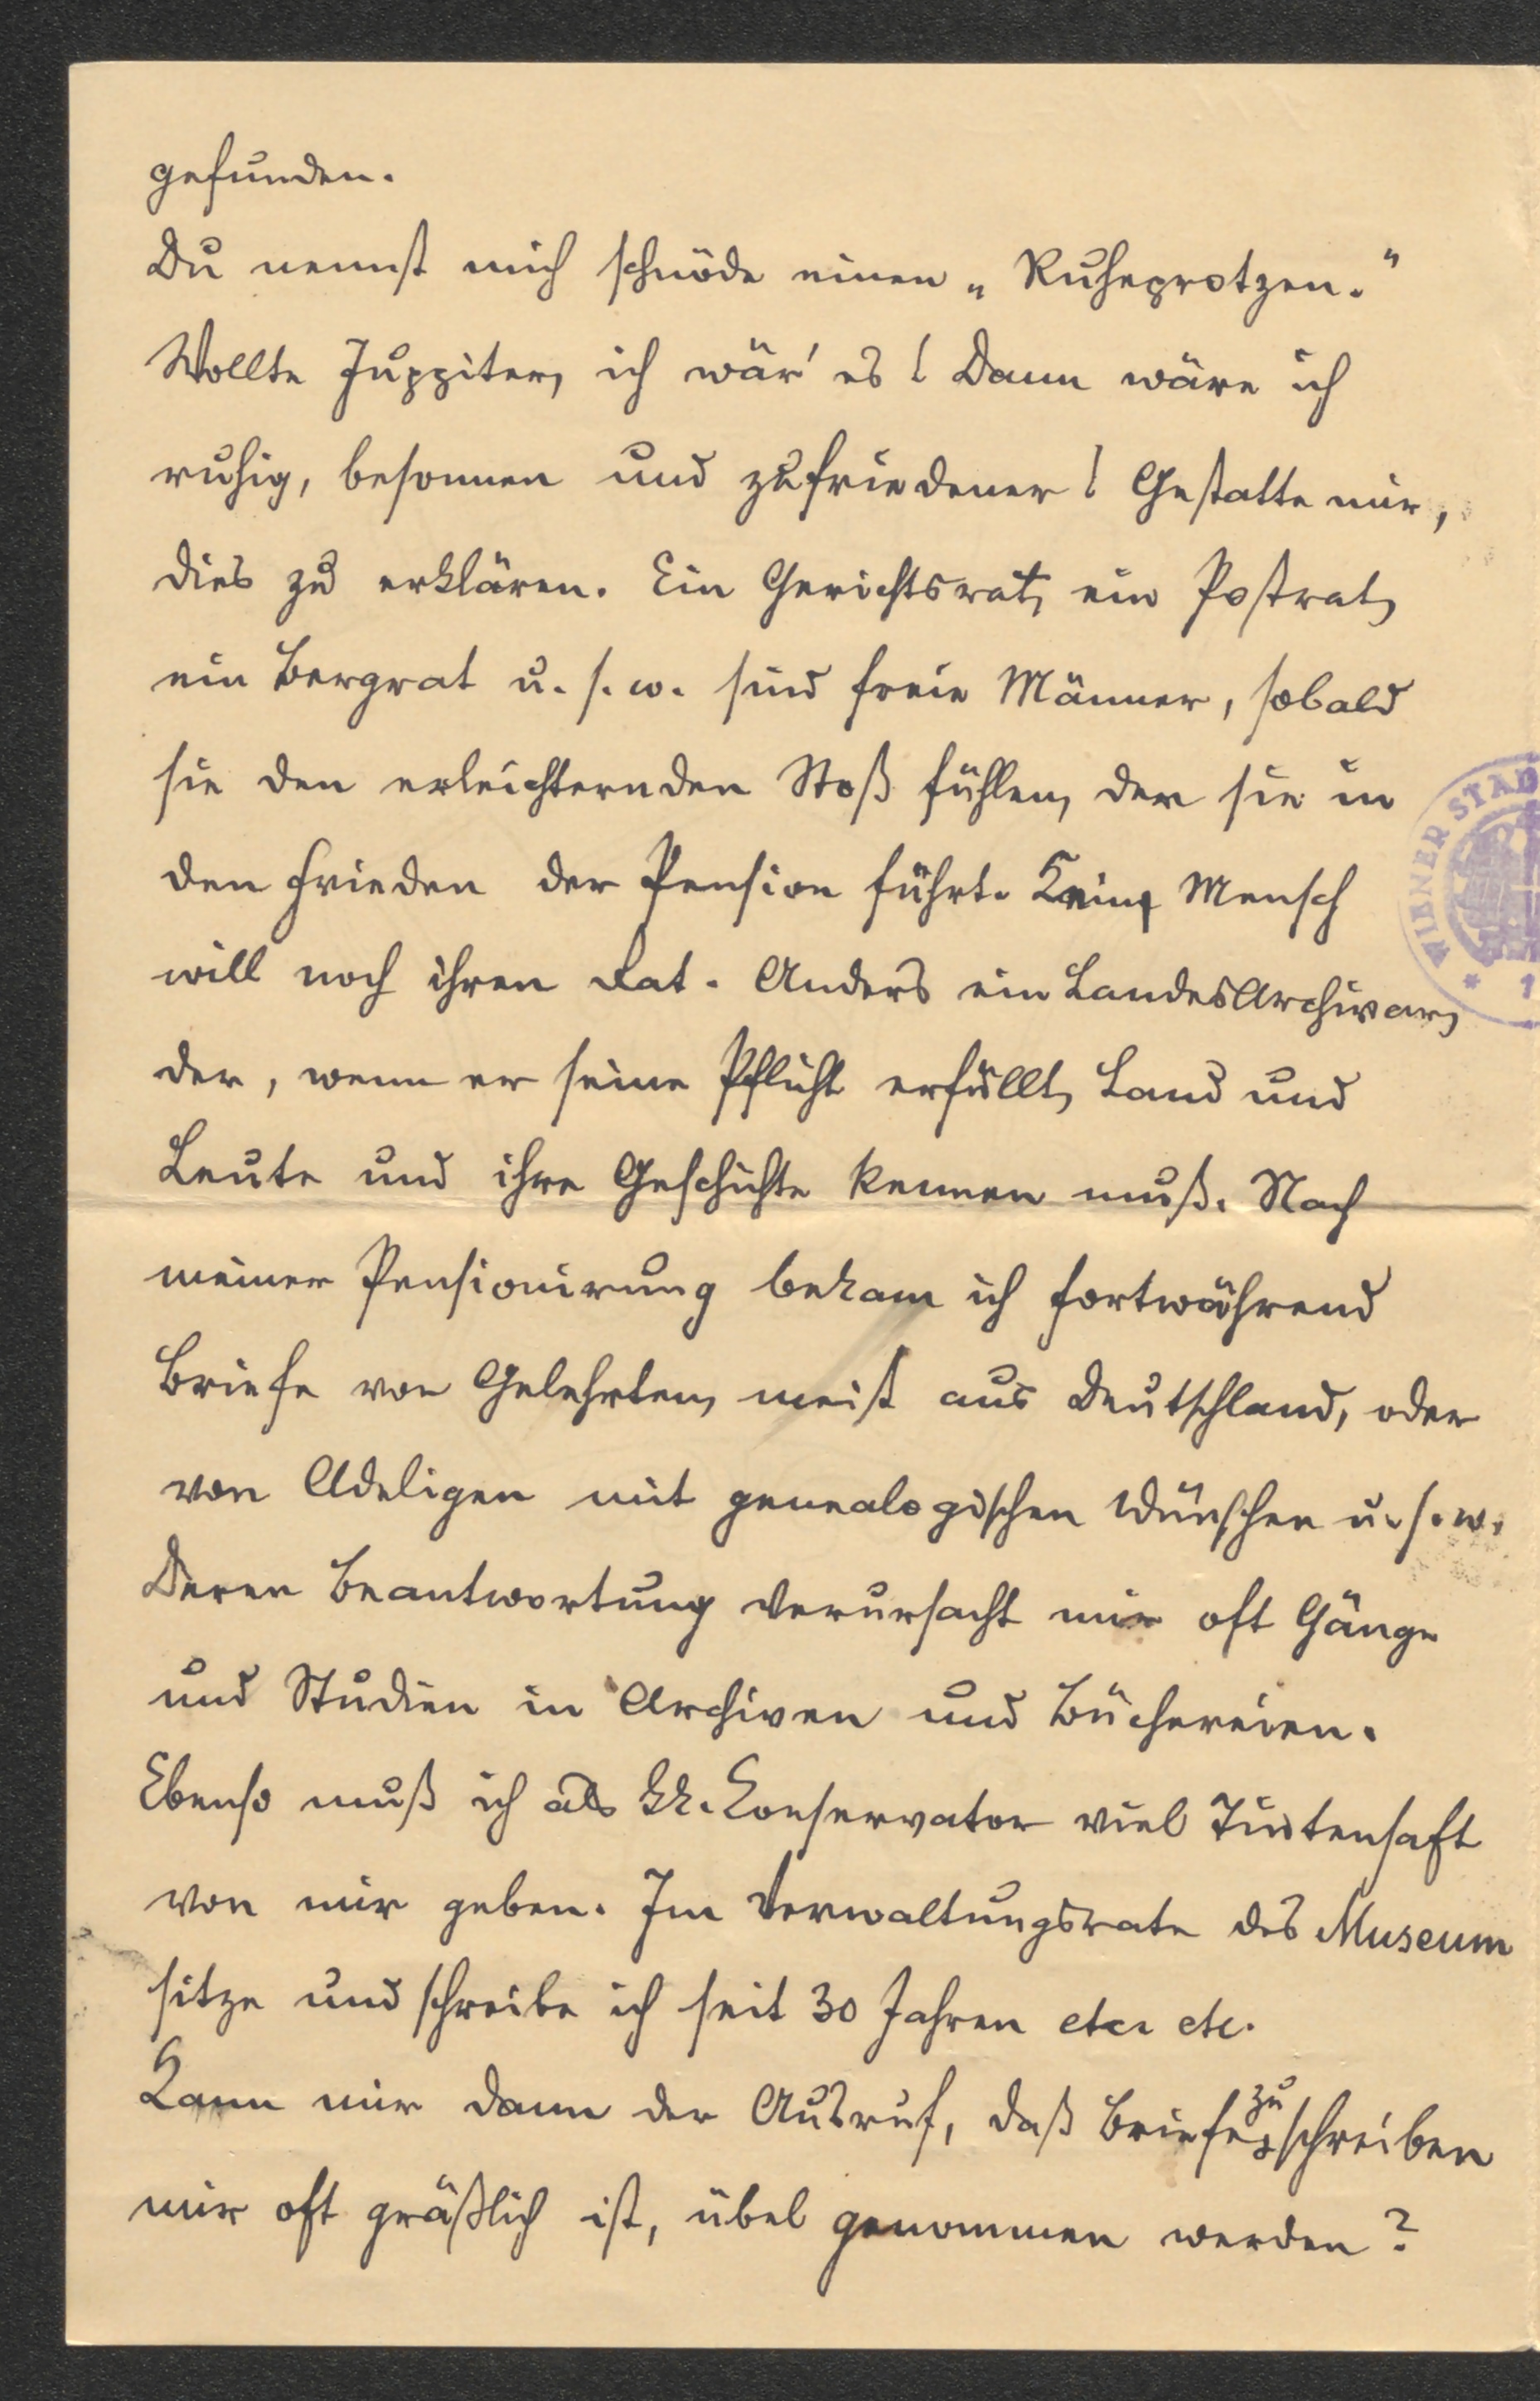 gefunden.
Du nennst mich schnöde einen „Ruheprotzen."
Wollte Juppiter, ich wär' es! Dann wäre ich
ruhig, besonnen und zufriedener! Gestatte mir,
dies zu erklären. Ein Gerichtsrat, ein Postrat,
ein Bergrat u. s. w. sind freie Männer, sobald
sie den erleichternden Stoß fühlen, der sie in
den Frieden der Pension führt. Kein Mensch
will noch ihren Rat. Anders ein LandesArchivar,
der, wenn er seine Pflicht erfüllt, Land und
Leute und ihre Geschichte kennen muß. Nach
meiner Pensionirung bekam ich fortwährend
Briefe von Gelehrten, meist aus Deutschland, oder
von Adeligen mit genealogischen Wünschen u. s. w.
Deren Beantwortung verursacht mir oft Gänge
und Studien in Archiven und Büchereien.
Ebenso muß ich als kk. Konservator viel Tintensaft
von mir geben. Im Verwaltungsrate des Museum
sitze und schreibe ich seit 30 Jahren etc. etc.
Kann mir dann der Ausruf, daß Briefe zu schreiben
mir oft gräßlich ist, übel genommen werden?
WIENER STAD